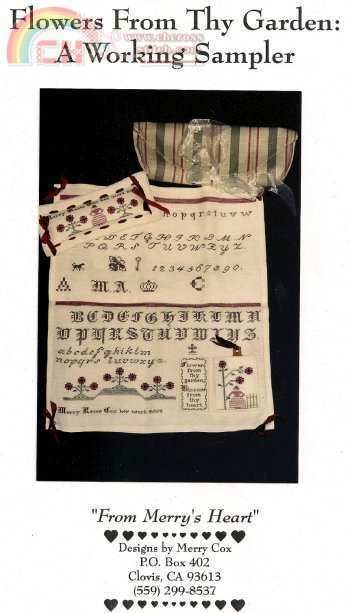 Flowers From Thy Garden:
A Working Sampler
www.chcross
stitch.com
nopqrstuvw
DEFGHIJKLMN
PQRSTUVWXYZ
1234567890
M A
C
BCDEFGHIKLMN
OPQRSTUVWXYZ
abcdefghiklm
nopqrstuvwxyz
Flowers
from
thy
garden
Blossom
from
thy
heart
Merry
Cox her work
"From Merry's Heart"
Designs by Merry Cox
P.O. Box 402
Clovis, CA 93613
(559) 299-8537